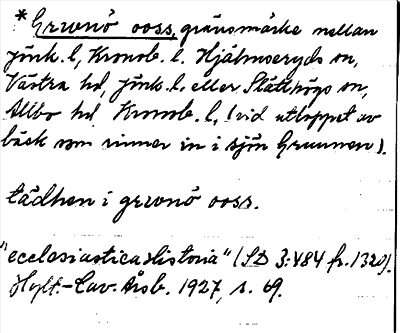 * Grwnö ooss, gränsmärke mellan
Jönk. l, Kronob. l. Hjälmseryds sn,
Västra hd, Jönk. l. eller Slätthögs sn,
Allbo hd, Kronob. l, (vid utloppet av
bäck som rinner in i sjön Grunnen).
tädhen i grwnö ooss.
"ecclesiastica Historia" (SD 3:484 fr. 1320).
Hylt.-Cav. Årsb. 1927, s. 69.